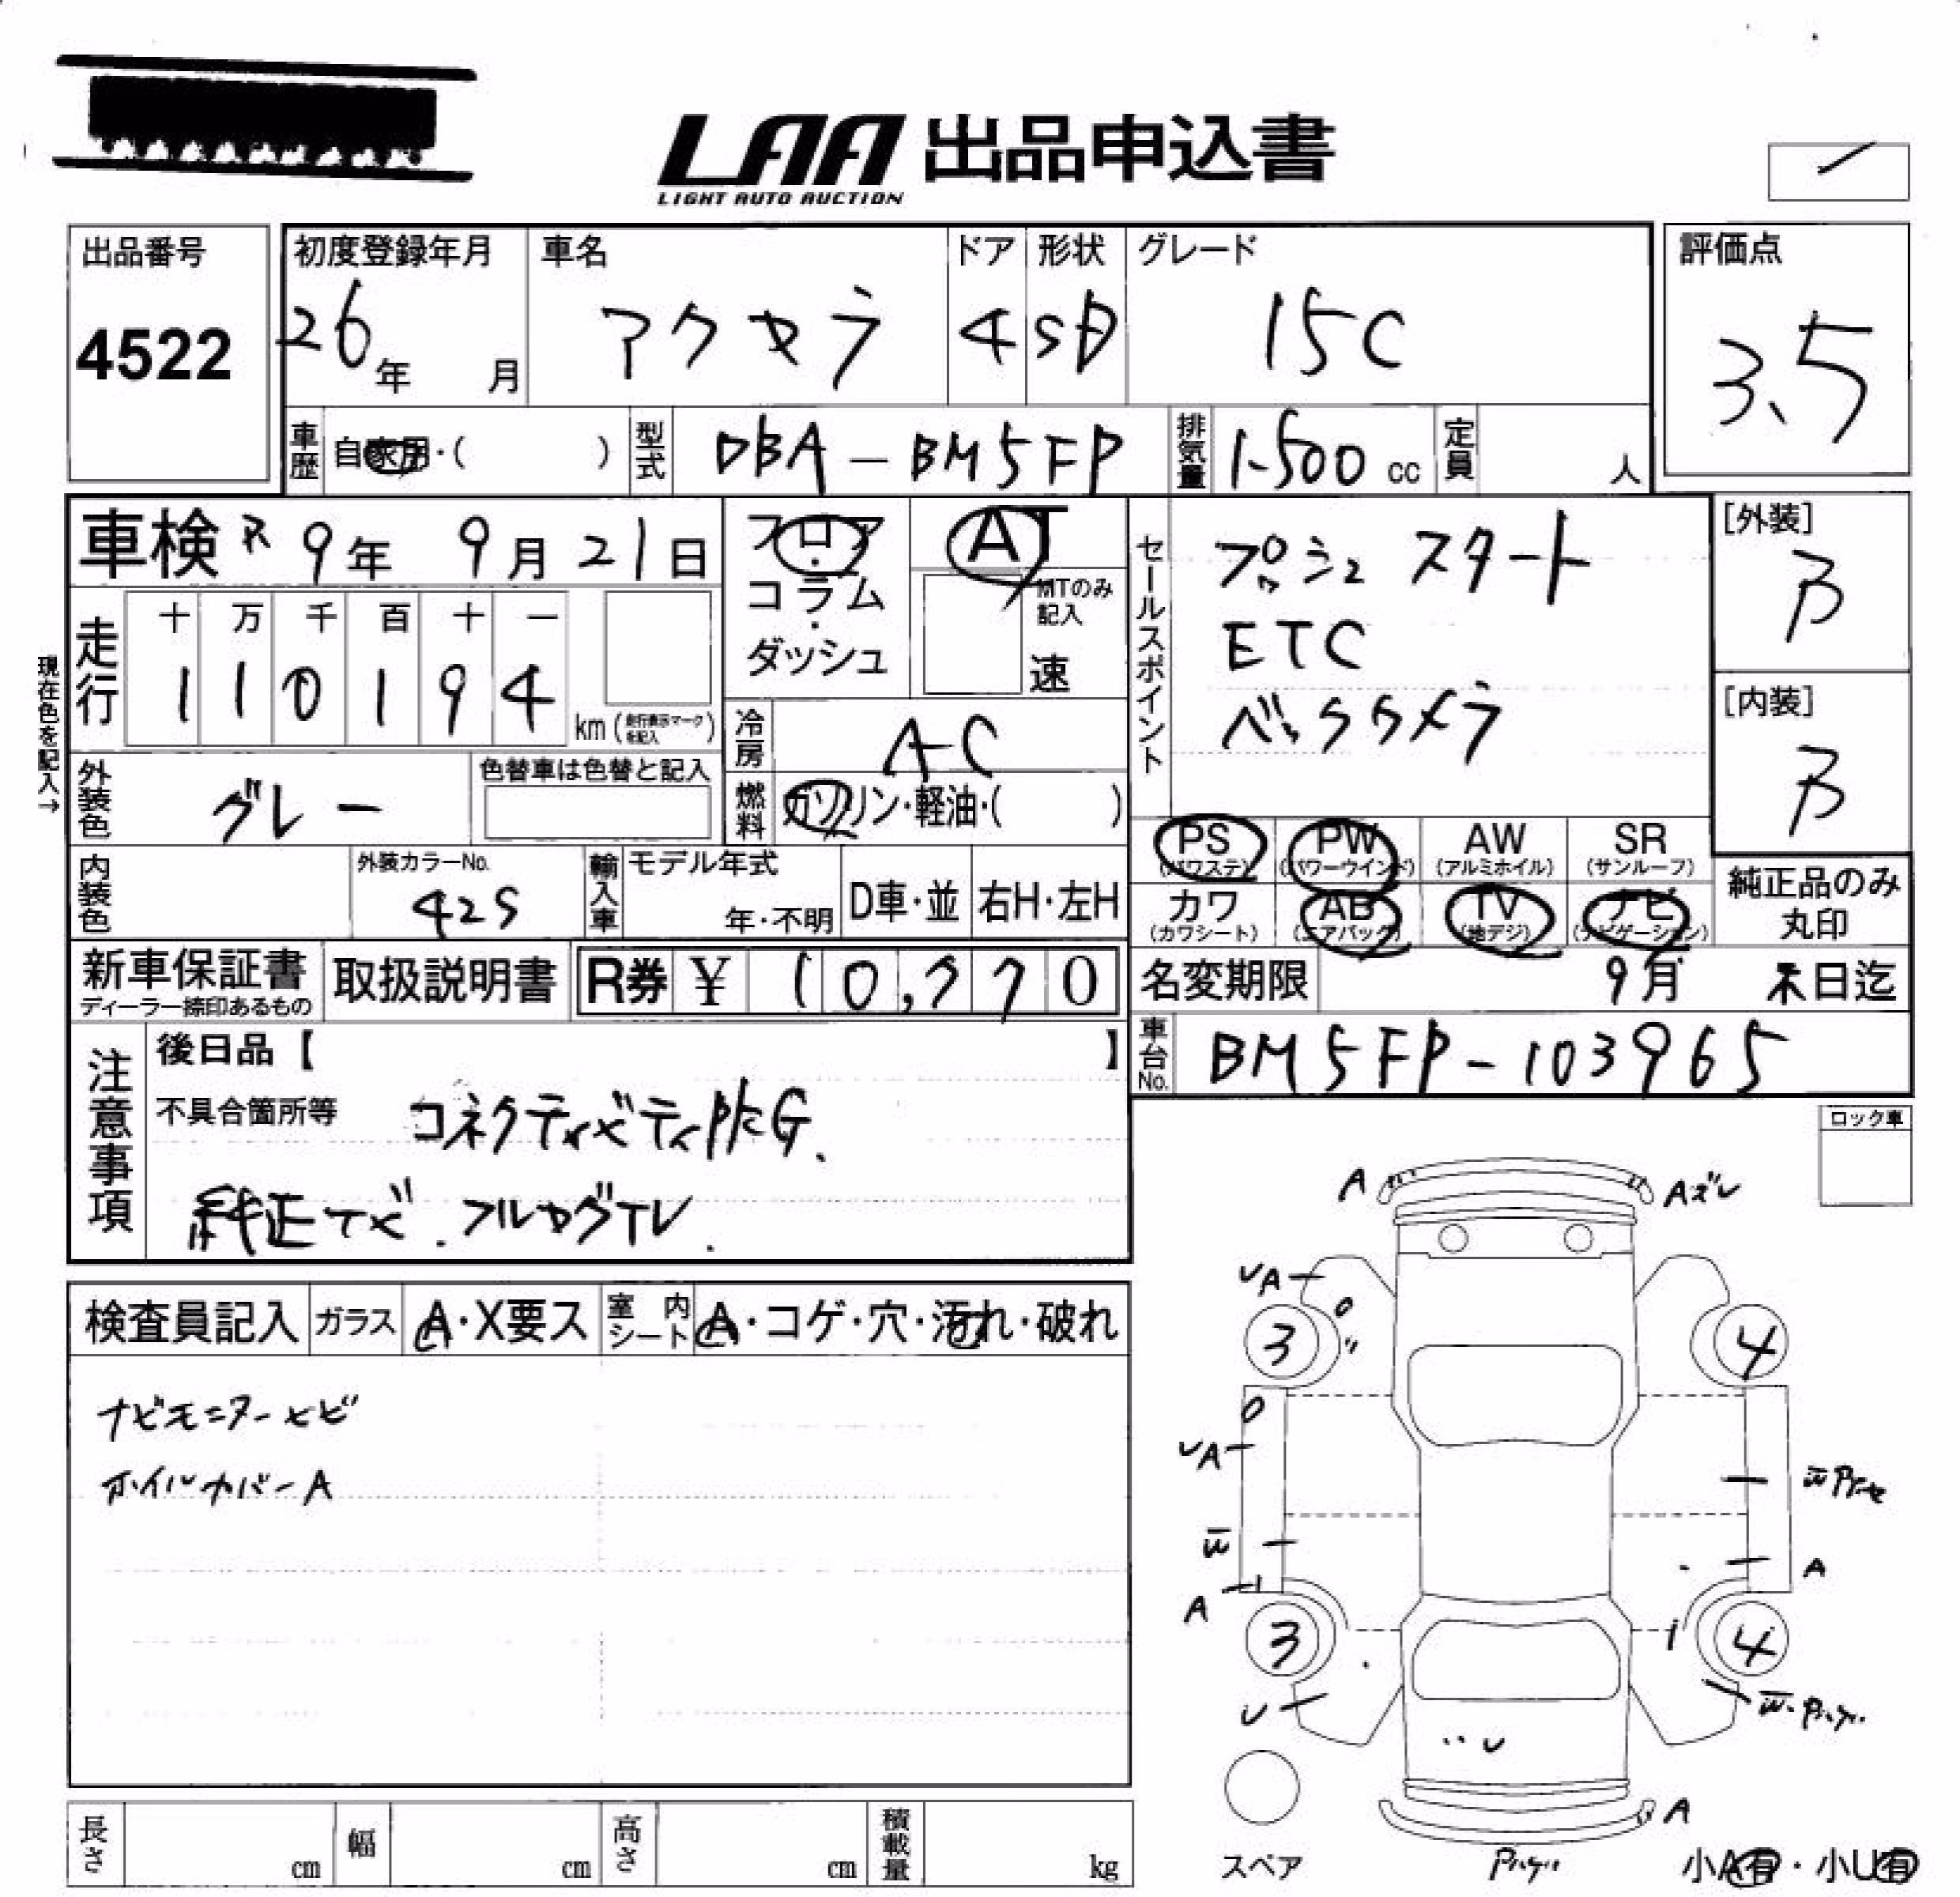 LAA 出品申込書
LIGHT AUTO AUCTION
出品番号
4522
初度登録年月
26年 月
車名
アクセラ
ドア
4
形状
SD
グレード
15C
評価点
3.5
車歴 自家用・( )
型式 DBA-BM5FP
排気量 1.500 cc
定員 人
車検 R 9年 9月 21日
フロア・コラム・ダッシュ
AT
MTのみ記入
速
セールスポイント
プッシュスタート
ETC
バックカメラ
[外装]
B
[内装]
B
現在色を記入→
走行
十 万 千 百 十 一
1 1 0 1 9 4
km (走行表示マークを記入)
冷房 AC
燃料 ガソリン・軽油・( )
外装色 グレー
色替車は色替と記入
内装色
外装カラーNo.
42S
輸入車
モデル年式
年・不明
D車・並
右H・左H
PS (パワステ)
PW (パワーウインド)
AW (アルミホイル)
SR (サンルーフ)
カワ (カワシート)
AB (エアバッグ)
TV (地デジ)
ナビ (ナビゲーション)
純正品のみ丸印
新車保証書
ディーラー捺印あるもの
取扱説明書
R券 ¥ 10,770
名変期限 9月 末日迄
車台No. BM5FP-103965
注意事項
後日品【 】
不具合箇所等 コネクティビティPKG.
純正ナビ.フルセグTV.
ロック車
検査員記入
ガラス A・X要ス
室内シート A・コゲ・穴・汚れ・破れ
ナビモニターヒビ
ホイルカバーA
A
Aズレ
UA
3
4
UA
W
A
A
3
4
U
U
A
スペア
小A有・小U有
長さ cm
幅 cm
高さ cm
積載量 kg